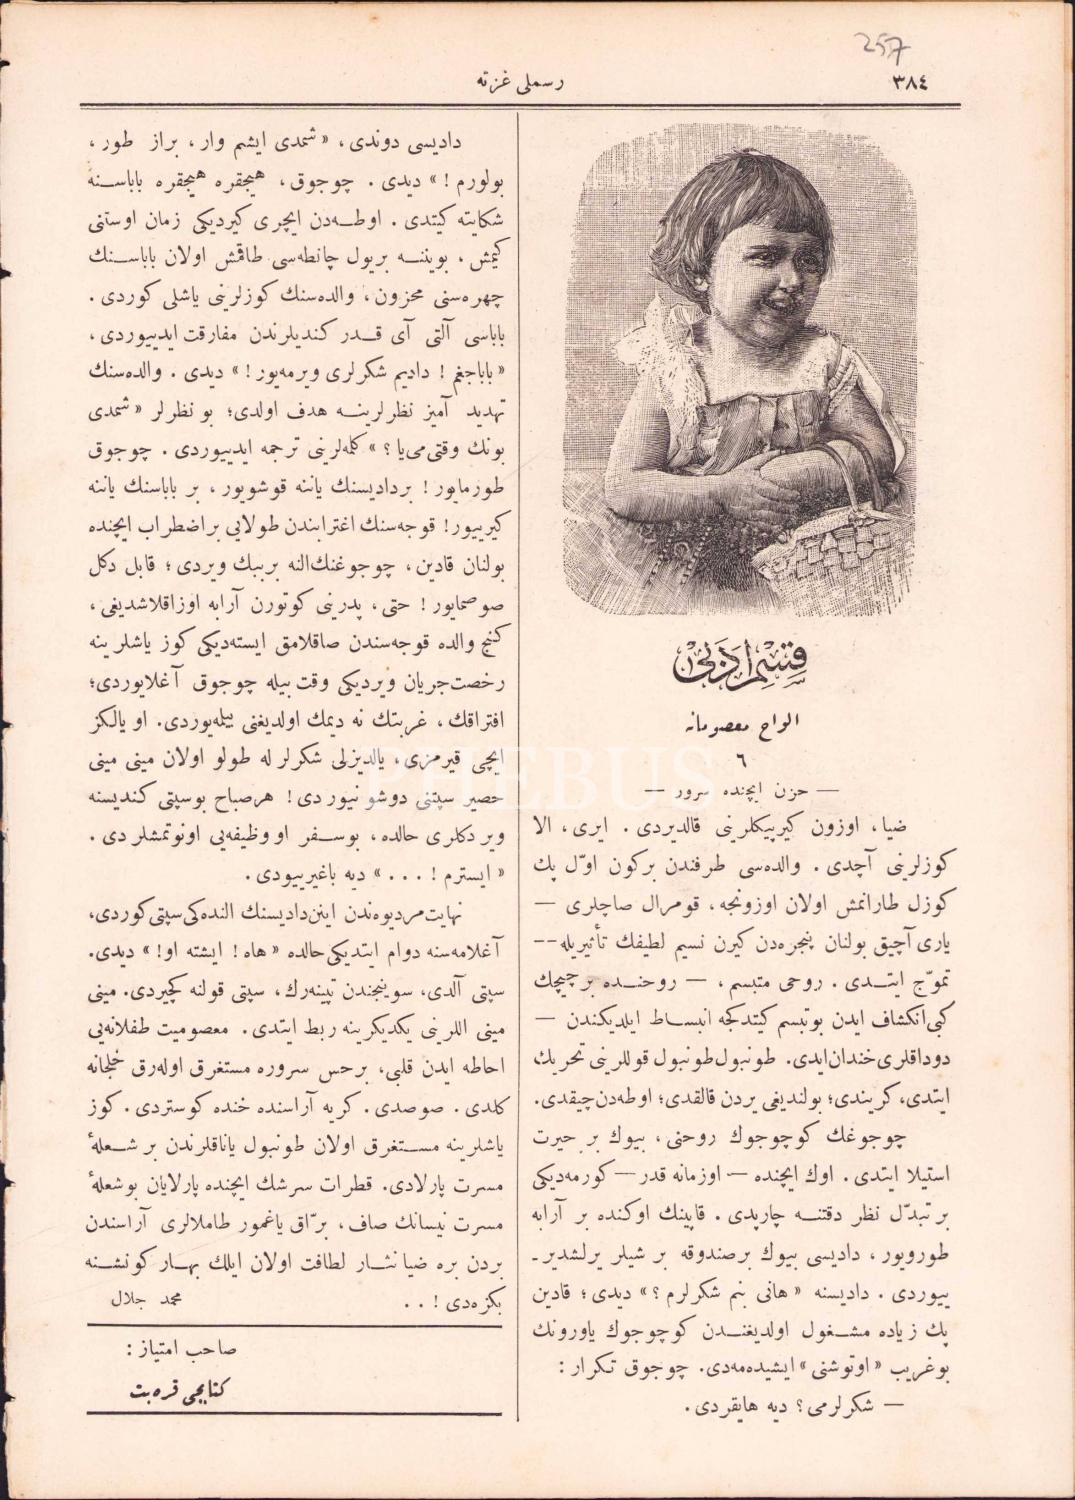 257
٣٨٤
رسملی غزته
قسم ادبی
الواح معصومانه
٦
— حزن ایچنده سرور —
ضیا، اوزون کیرپیکلرینی قالدیردی . ایری، الا
کوزلرینی آچدی . والده‌سی طرفندن برکون اوّل پك
کوزل طارانمش اولان اوزونجه، قومرال صاچلری —
یاری آچیق بولنان پنجره‌دن کیرن نسیم لطیفك تأثیریله--
تموّج ایتـدی . روحی متبسم، — روحنـده بر چیچك
کبی انکشاف ایدن بوتبسم کیتدکجه انبسـاط ایلدیکندن —
دوداقلری خندان ایدی. طونبول طونبول قوللرینی تحریك
ایتدی، کریندی؛ بولندیغی یردن قالقدی؛ اوطه‌دن چیقدی.
چوجوغك کوچوجوك روحنی، بیوك بر حیرت
استیلا ایتدی . اوك ایچنده — اوزمانه قدر — کورمه‌دیکی
بر تبدّل نظر دقتنـه چارپدی . قاپینك اوکنده بر آرابه
طورویور، دادیسی بیوك برصندوقه بر شیلر یرلشدیر-
ییوردی . دادیسنه « هانی بنم شکرلرم ؟ » دیدی ؛ قادین
پك زیاده مشـغول اولدیغنـدن کوچوجوك یاورونك
بوغریب « اوتوشنی » ایشیده‌مه‌دی. چوجوق تکرار :
— شکرلرمی ؟ دیه هایقردی .
دادیسی دوندی، « شمدی ایشم وار، براز طور،
بولورم ! » دیدی . چوجوق، هیچقره هیچقره باباسـنه
شکایته کیتدی . اوطـه‌دن ایچری کیردیکی زمان اوستنی
کیمش ، بویننـه بریول چانطه‌سی طاقمش اولان باباسـنك
چهره‌سنی محزون، والده‌سنك کوزلرینی یاشلی کوردی .
باباسی آلتی آی قـدر کندیلرندن مفارقت ایدییوردی،
« باباجغم ! دادیم شکرلری ویرمه‌یور ! » دیدی . والده‌سنك
تهدید آمیز نظرلرینـه هدف اولدی؛ بو نظرلر « شمدی
بونك وقتی می یا ؟ » کله‌لرینی ترجمه ایدییوردی . چوجوق
طورمایور ! بردادیسنك یاننه قوشویور ، بر باباسنك یاننه
کیرییور! قوجه‌سنك اغترابندن طولایی براضطراب ایچنده
بولنان قادین، چوجوغنك النه بربیك ویردی ؛ قابل دکل
صوصمایور ! حتی، پدرینی کوتورن آرابه اوزاقلاشدیغی،
کنج والده قوجه‌سندن صاقلامق ایسته‌دیکی کوز یاشلرینه
رخصت جریان ویردیکی وقت بیله چوجوق آغلایوردی؛
افتراقك، غربتك نه دیمك اولدیغنی بیله‌یوردی. او یالکز
ایچی قیرمزی، یالدیزلی شکرلر له طولو اولان مینی مینی
حصیر سپتنی دوشونیوردی! هرصباح بوسپتی کندیسنه
ویردکلری حالده، بوسـفر او وظیفه‌یی اونوتمشلردی .
« ایسترم ! . . . » دیه باغیرییودی.
نهایت مردیوه‌ندن اینن دادیسنك النده‌کی سپتی کوردی،
آغلامه‌سنه دوام ایتدیکی حالده « هاه ! ایشته او! » دیدی.
سپتی آلدی، سوینجندن تپینه‌رك، سپتی قولنه کچیردی. مینی
مینی اللرینی یکدیکرینه ربط ایتدی. معصومیت طفلانه‌یی
احاطه ایدن قلبی، برحس سروره مستغرق اوله‌رق خلجانه
کلدی . صوصدی . کریه آراسنده خنده کوستردی . کوز
یاشلرینه مسـتغرق اولان طونبول یاناقلرندن بر شـعلهٔ
مسرت پارلادی. قطرات سرشك ایچنده پارلایان بوشعلهٔ
مسرت نیسانك صاف، برّاق یاغمور طاملالری آراسندن
بردن بره ضیانثـار لطافت اولان ایلك بهـار کونشنـه
بکزه‌دی ! . .
محمد جلال
صاحب امتیاز :
کتابجی قره‌بت
PHEBUS